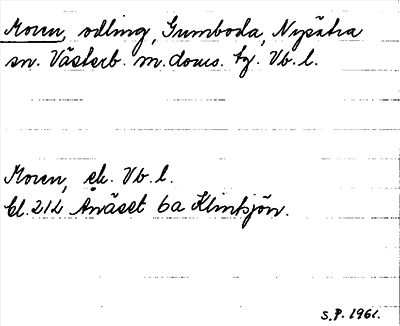 Moren, odling, Gumboda, Nysätra
sn. Västerb. m. doms. tg. Vb. l.
Moren, ek. Vb. l.
bl. 212 Anäset 6a Klintsjön.
S.P. 1961.